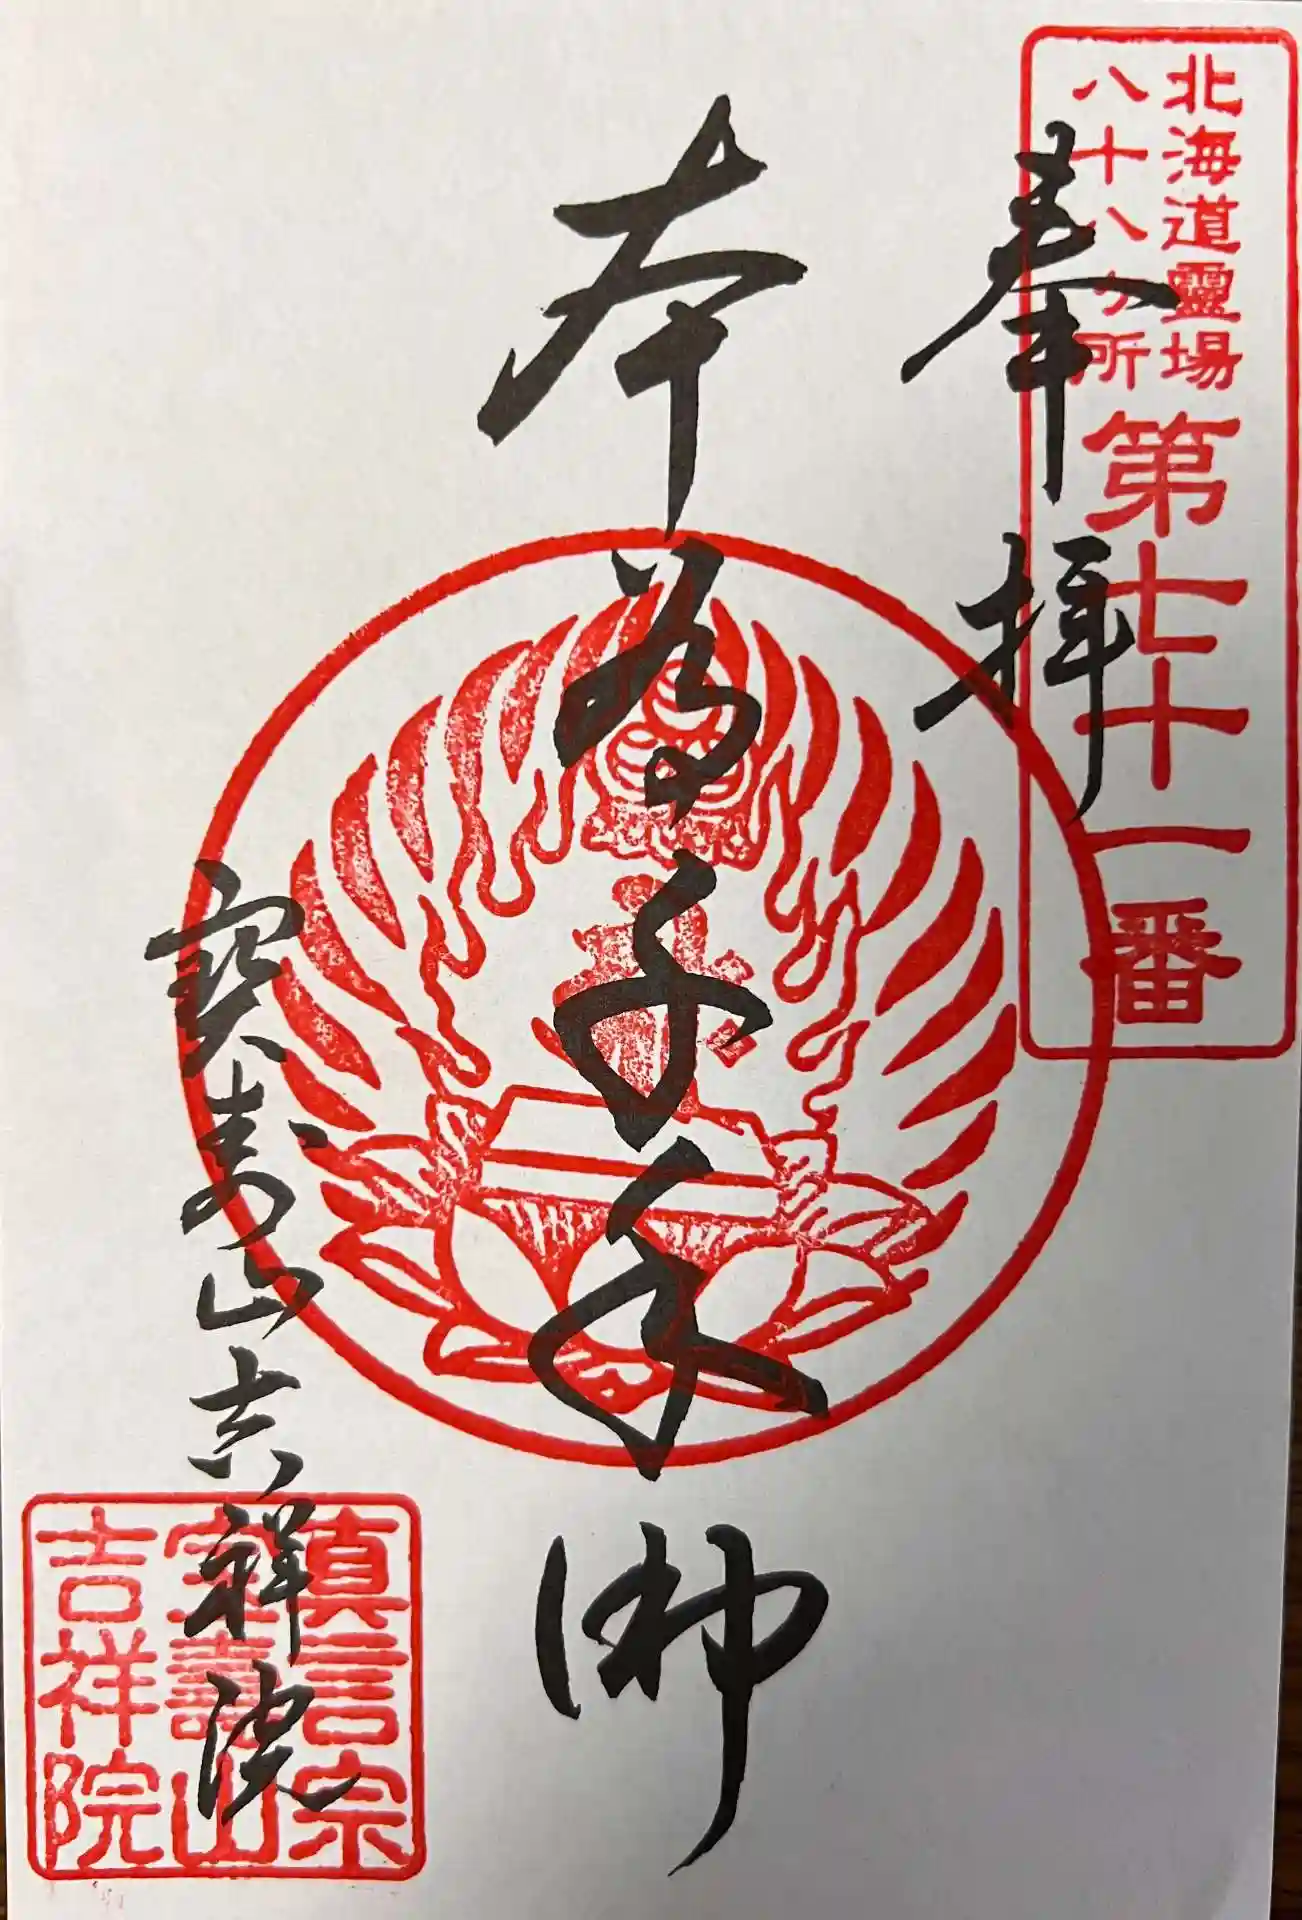 北海道靈場
八十八ヶ所
第七十一番
奉拝
本尊千手
寳寿山吉祥院
真言宗
宝壽山
吉祥院